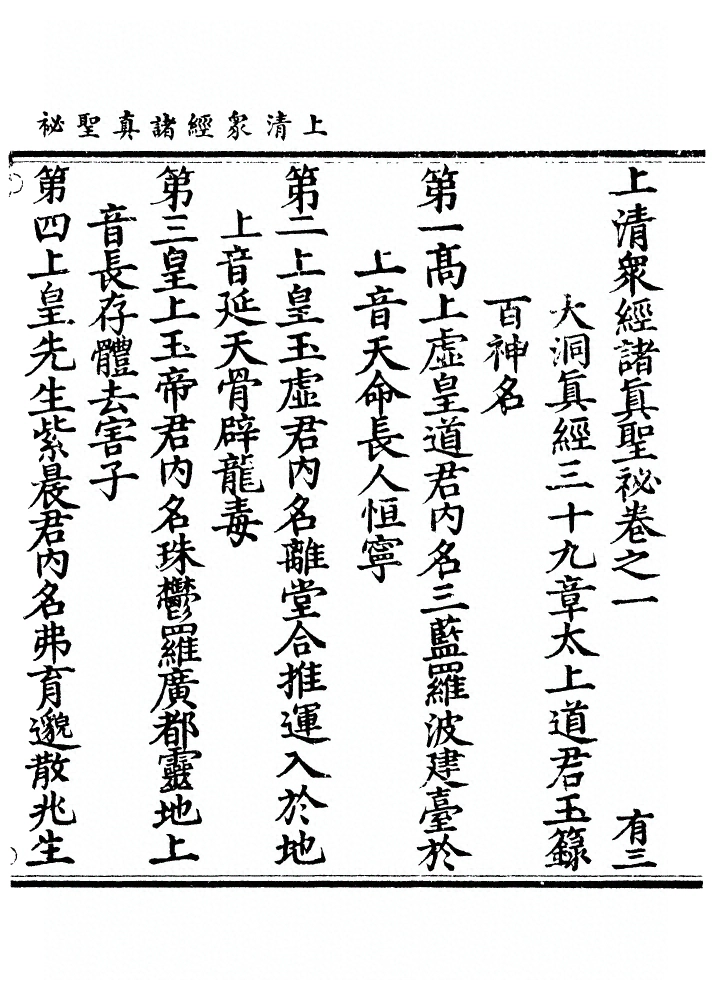 上清衆經諸真聖祕
上清衆經諸眞聖祕卷之一 有三
大洞眞經三十九章太上道君玉籙
百神名
第一髙上虛皇道君内名三藍羅波建臺於
上音天命長人恒寧
第二上皇玉虛君内名離堂合推運入於地
上音延天骨辟龍毒
第三皇上玉帝君内名珠欝羅廣都靈地上
音長存體去害子
第四上皇先生紫晨君内名弗育邈散兆生